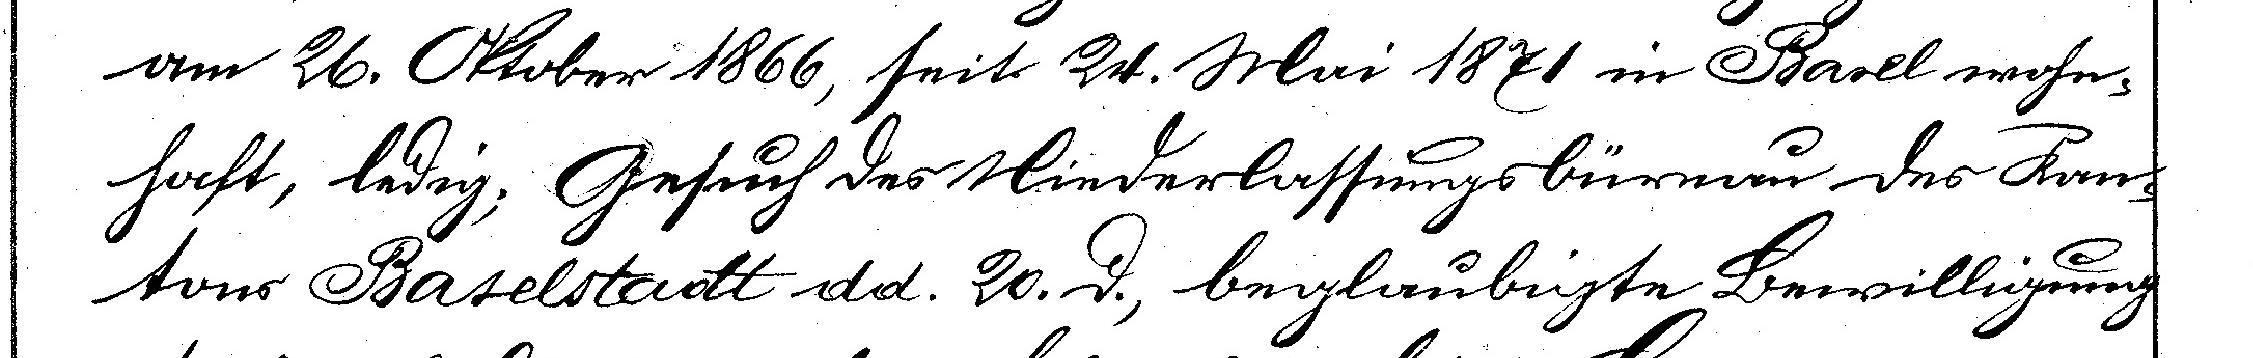 am 26. Oktober 1866, seit 24. Mai 1871 in Basel wohn-
haft, ledig; Gesuch des Niederlassungsbüreau des Kan-
tons Baselstadt dd. 20. d., beglaubigte Bewilligung